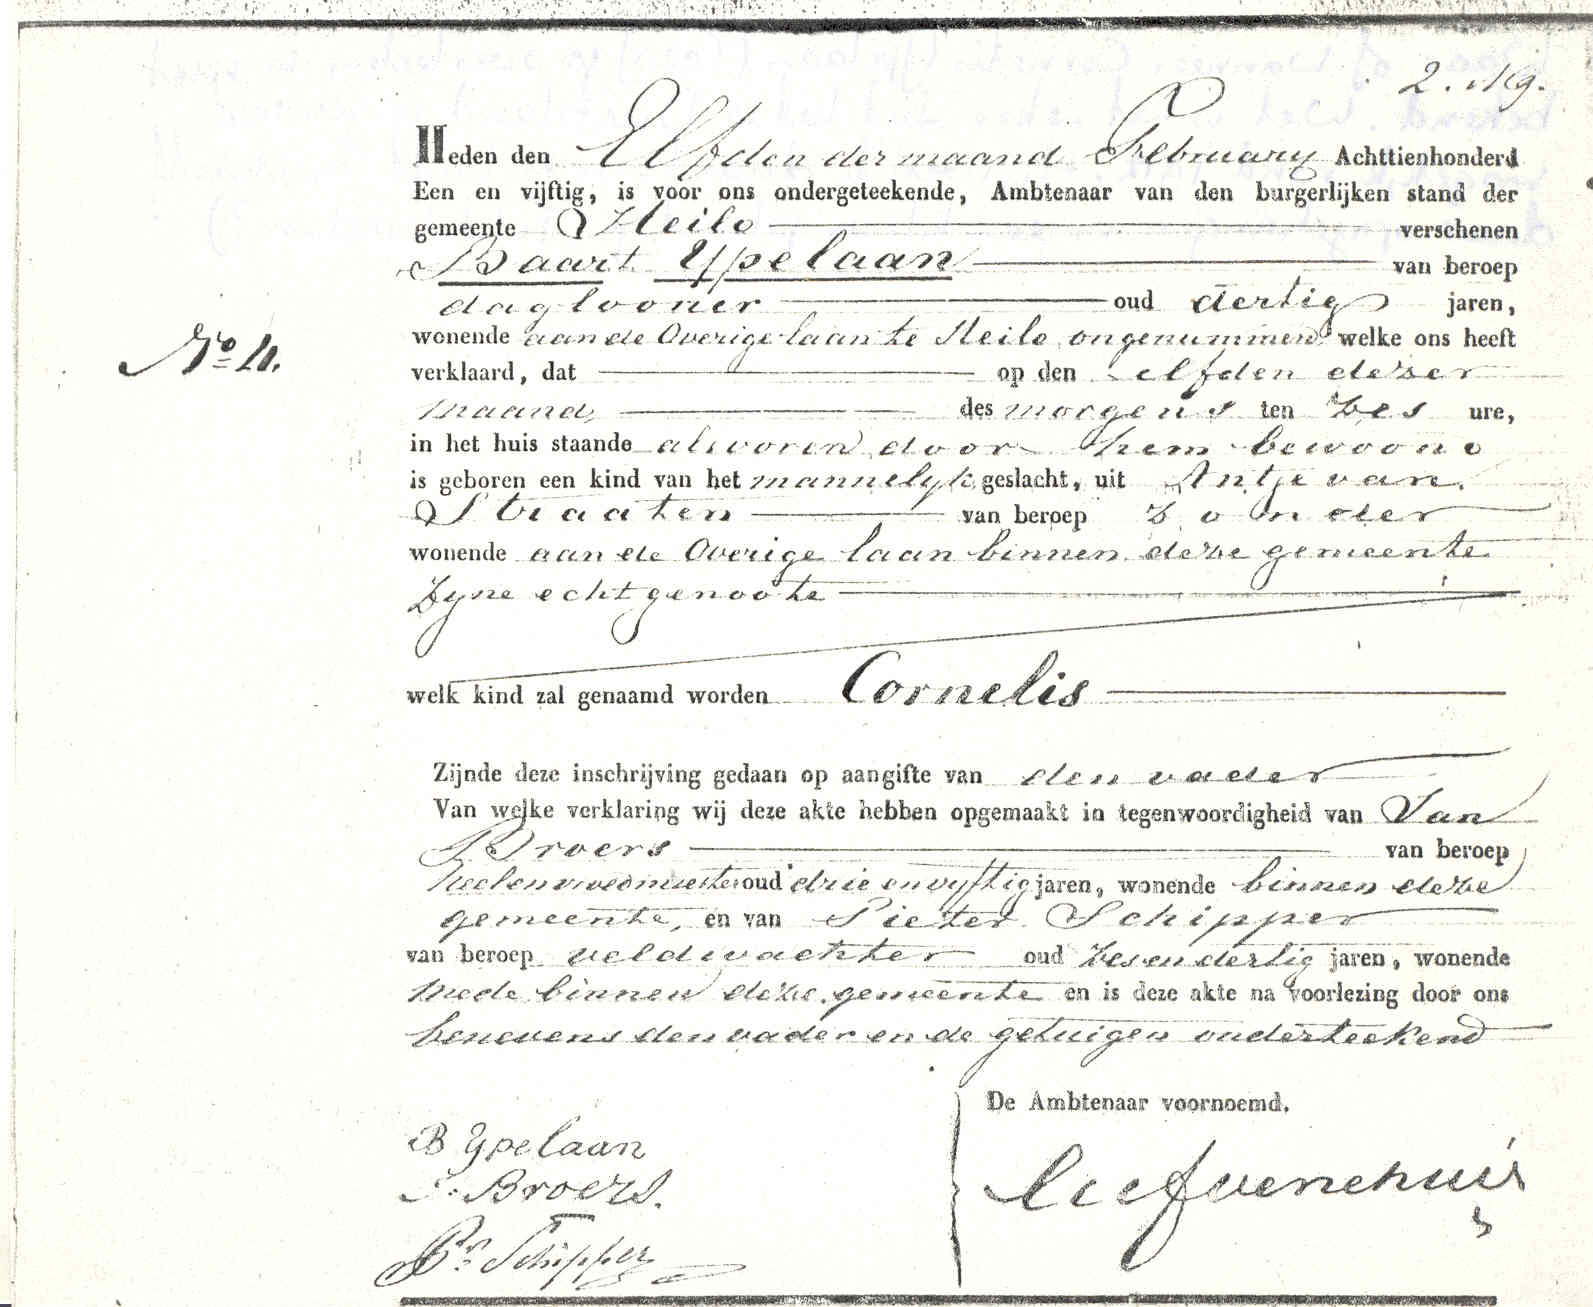 2. 19.
Heden den Elfden der maand February Achttienhonderd
Een en vijftig, is voor ons ondergeteekende, Ambtenaar van den burgerlijken stand der
gemeente Heilo verschenen
Baart Ypelaan van beroep
daglooner oud dertig jaren,
wonende aan de Overige laan te Heilo ongenummerd welke ons heeft
No 4.
verklaard, dat op den elfden dezer
maand, des morgens ten zes ure,
in het huis staande alsvoren door hem bewoond
is geboren een kind van het mannelyk geslacht, uit Antje van
Straaten van beroep zonder
wonende aan de Overige laan binnen deze gemeente
Zyne echtgenoote
welk kind zal genaamd worden Cornelis
Zijnde deze inschrijving gedaan op aangifte van den vader
Van welke verklaring wij deze akte hebben opgemaakt in tegenwoordigheid van Jan
Broers van beroep
heel en vroedmeester oud drie en vyftig jaren, wonende binnen deze
gemeente, en van Pieter Schipper
van beroep veldwachter oud zes en dertig jaren, wonende
mede binnen deze gemeente en is deze akte na voorlezing door ons
benevens den vader en de getuigen onderteekend
De Ambtenaar voornoemd.
B Ypelaan
J. Broers.
Pr. Schipper